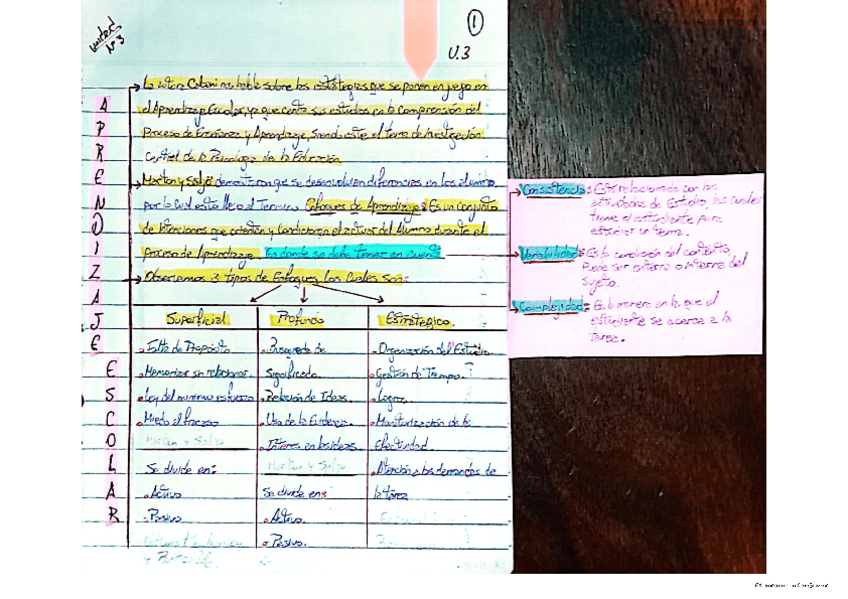 Unidad
Nº 3
1
U.3
APRENDIZAJE
ESCOLAR
La autora Cabani nos habla sobre las estrategias que se ponen en juego en
el Aprendizaje Escolar, ya que centra sus estudios en la Comprensión del
Proceso de Enseñanza y Aprendizaje, siendo este el tema de Investigación
Central de la Psicología de la Educación.
demostraron que se desenvolvían diferencias en los alumnos
por lo cual esto llevo al Termino Enfoques de Aprendizaje: Es un conjunto
de Intenciones que orientan y Condiciona el actuar del Alumno durante el
Proceso de Aprendizaje. Es donde se debe tener en cuenta
Observamos 3 tipos de Enfoques los cuales son:
Superficial
Profundo
Estrategico.
Falta de Propósito
Memorizar sin relacionar
Ley del mínimo esfuerzo
Miedo al fracaso
Se divide en:
Activo
Pasivo
Busqueda de
Significado
Relación de Ideas.
Uso de la Evidencia
Interes en las ideas
Se divide en:
Activo.
Pasivo.
Organización del Estudio
Gestión de Tiempo
Logro
Monitorización de la
Efectividad
Atención a las demandas de
la tarea
Consistencia: Esta relacionado con las
actividades de Estudio, las cuales
tiene el estudiante para
estudiar un tema.
Variabilidad: Es la condición del contexto,
Puede ser externo o interno del
Sujeto.
Complejidad: Es la manera en la que el
estudiante se acerca a la
tarea.